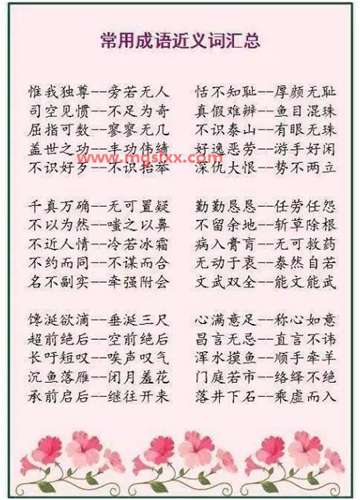 常用成语近义词汇总
惟我独尊--旁若无人 恬不知耻--厚颜无耻
司空见惯--不足为奇 真假难辨--鱼目混珠
屈指可数--寥寥无几 不识泰山--有眼无珠
盖世之功--丰功伟绩 好逸恶劳--游手好闲
www.mgslxx.com
不识好歹--不识抬举 深仇大恨--势不两立
千真万确--无可置疑 勤勤恳恳--任劳任怨
不以为然--嗤之以鼻 不留余地--斩草除根
不近人情--冷若冰霜 病入膏肓--无可救药
不约而同--不谋而合 无动于衷--泰然自若
名不副实--牵强附会 文武双全--能文能武
馋涎欲滴--垂涎三尺 心满意足--称心如意
超前绝后--空前绝后 昌言无忌--直言不讳
长吁短叹--唉声叹气 浑水摸鱼--顺手牵羊
沉鱼落雁--闭月羞花 门庭若市--络绎不绝
承前启后--继往开来 落井下石--乘虚而入